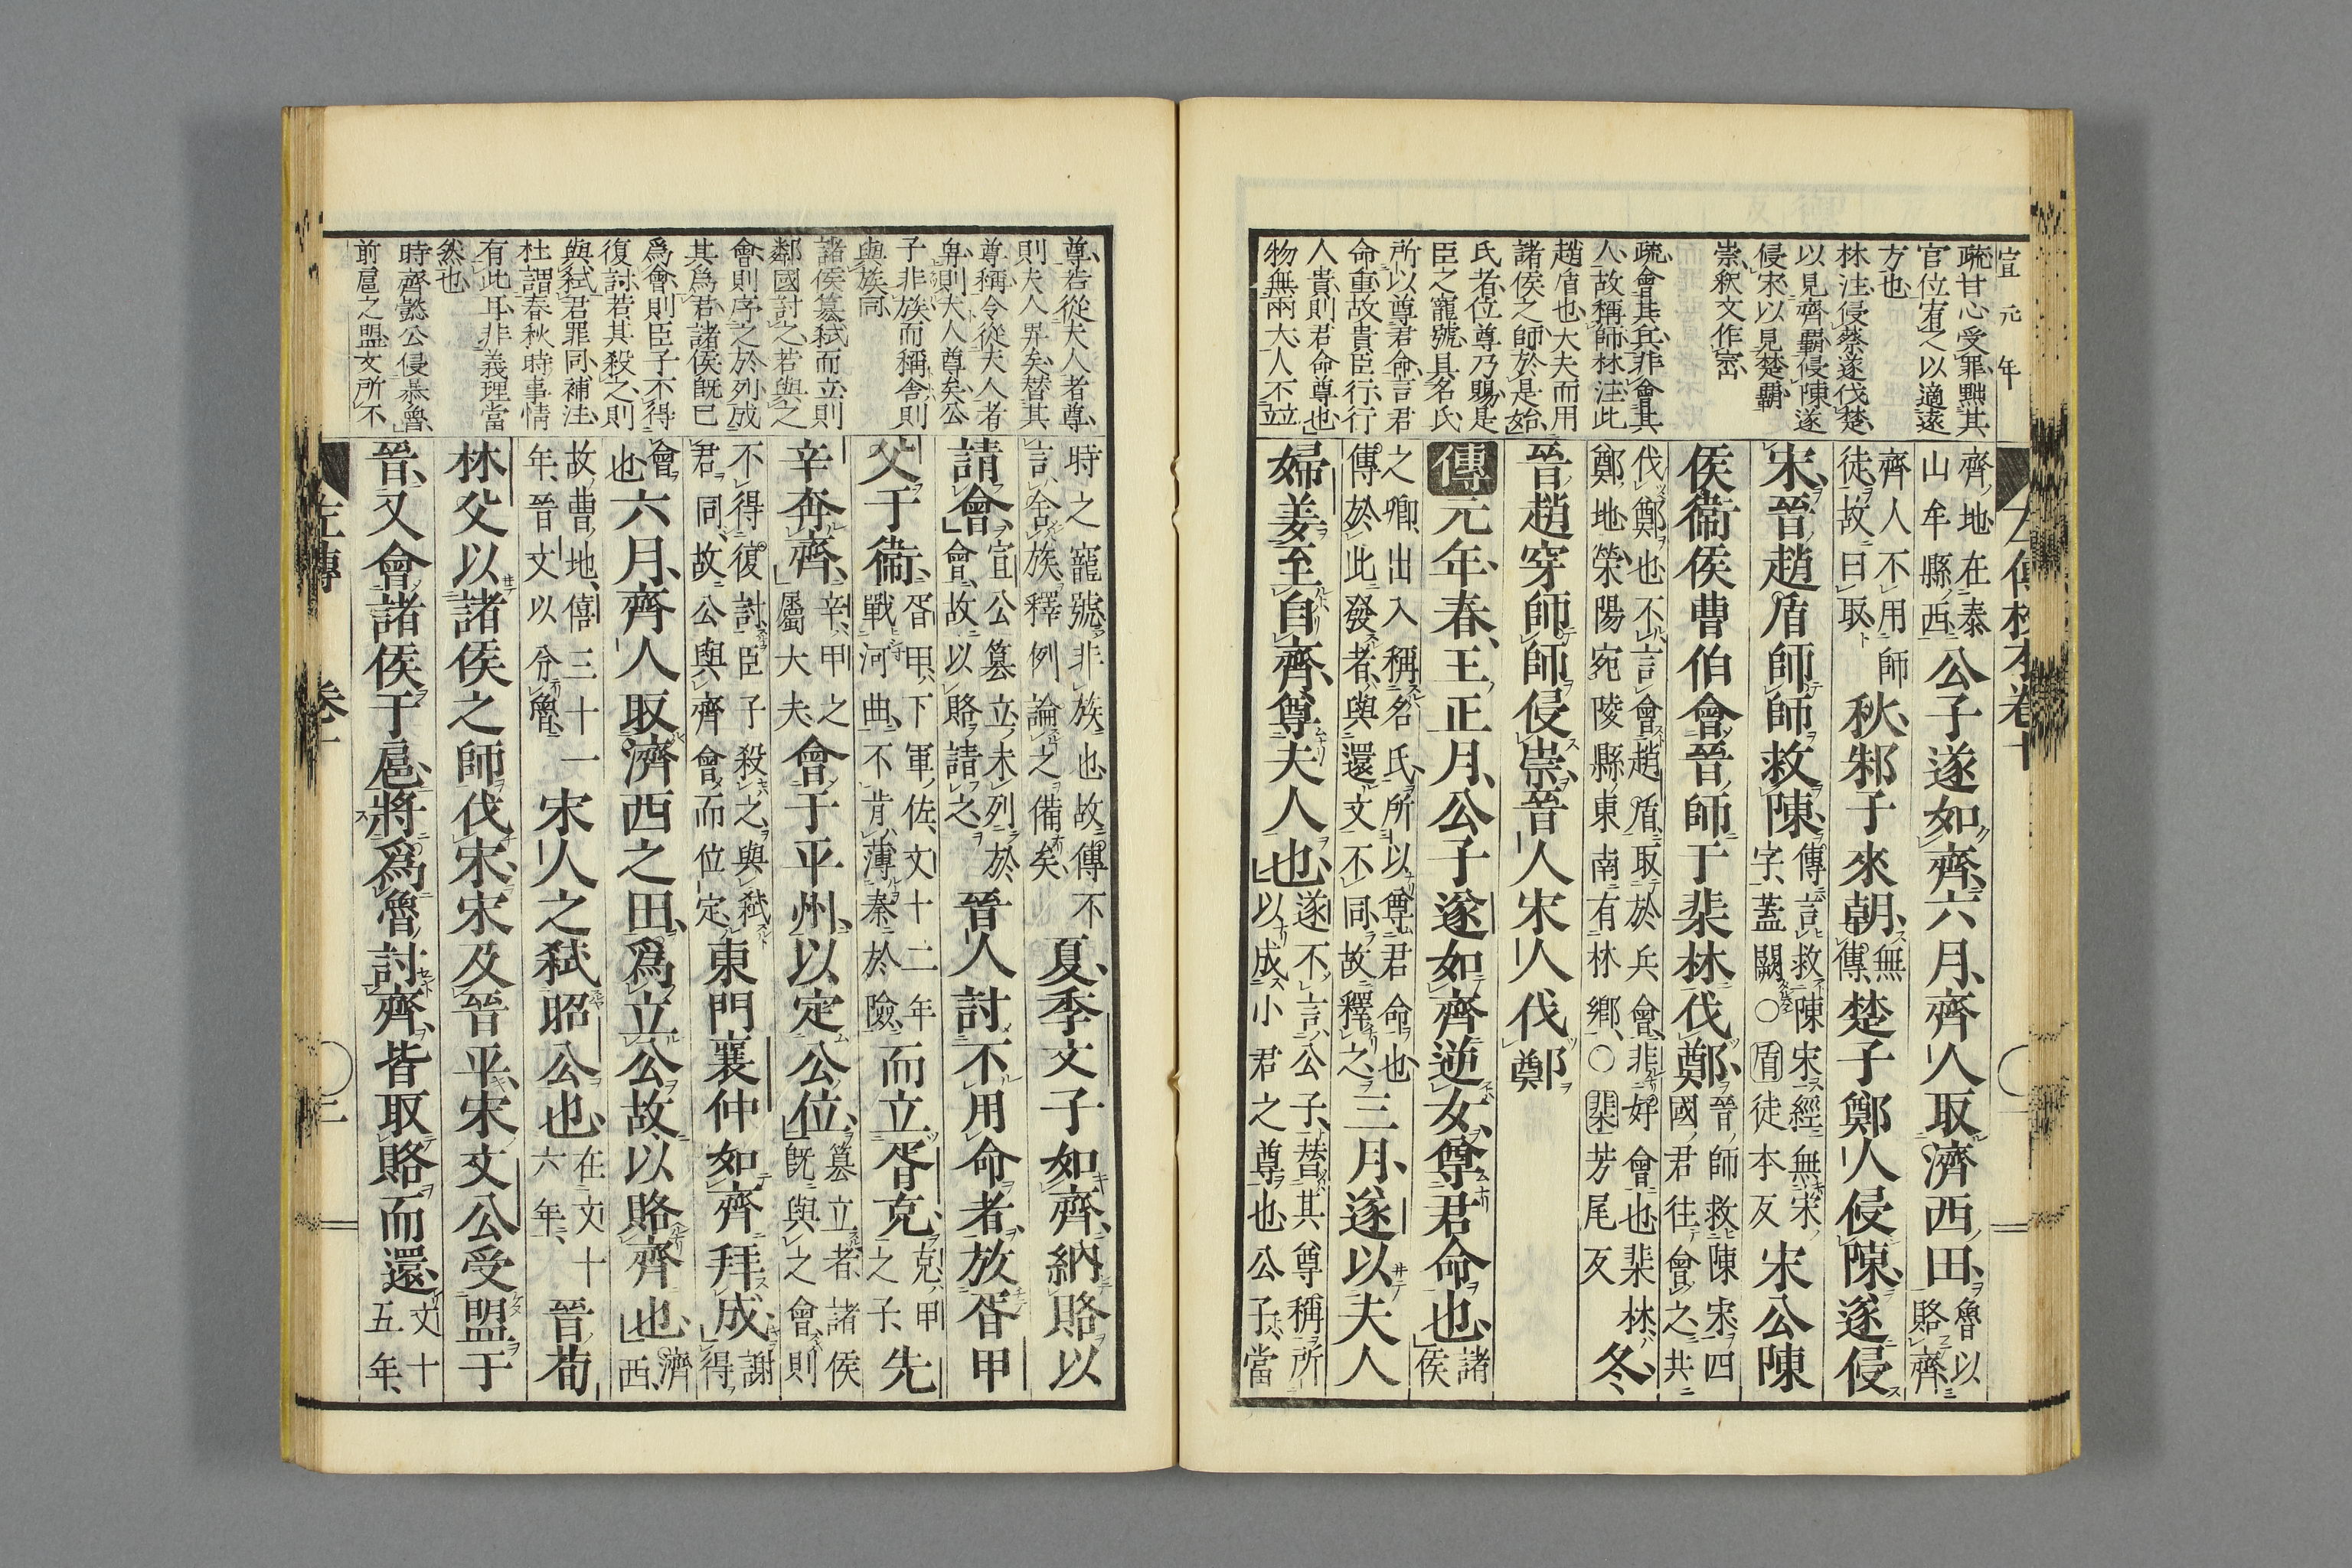 宣元年
疏甘心受罪黜其
官位宥之以適遠
方也
林注侵蔡遂伐楚
以見齊覇侵陳遂
侵宋以見楚覇
崇釈文作密
疏會其兵非會其
人故稱師林注此
趙盾也大夫而用
諸侯之師於是始
氏者位尊乃賜是
臣之寵號具名氏
所以尊君命言君
命重故貴臣行行
人貴則君命尊也
物無兩大人不並
左傳校本卷十
齊地在泰山牟縣西公子遂如齊六月齊人取濟西田魯以賂齊
齊人不用師徒故曰取秋邾子來朝無傳楚子鄭人侵陳遂侵
宋晉趙盾師師救陳傳言救陳宋經無宋字蓋闕〇盾徒本反宋公陳
侯衞侯曹伯會晉師于棐林伐鄭晉師救陳宋四國君往會之共
伐鄭也不言會趙盾取於兵會非好會也棐林鄭地滎陽宛陵縣東南有林鄉〇棐芳尾反冬
晉趙穿師師侵崇晉人宋人伐鄭
傳元年春王正月公子遂如齊逆女尊君命也諸侯
之卿出入稱名氏所以尊君命也傳於此發者與還文不同故釋之三月遂以夫人
婦姜至自齊尊夫人也遂不言公子替其尊稱所以成小君之尊也公子當
尊若從夫人者尊
則夫人畀矣替其
尊稱令從夫人者
畀則夫人尊矣公
子非族而稱舍則
與族同
諸侯篡弑而立則
鄰國討之若與之
會則序之於列成
其爲君諸侯旣已
爲會則臣子不得
復討若其殺之則
與弑君罪同補注
杜謂春秋時事情
有此耳非義理當
然也
時齊懿公侵暴魯
前扈之盟文所不
時之寵號非族也故傳不言舍族釋例論之備矣夏季文子如齊納賂以
請會宣公篡立未列於會故以賂請之晉人討不用命者放胥甲
父于衞胥甲下軍佐文十二年戰河曲不肯薄秦於險而立胥克克甲之子先
辛奔齊辛甲之屬大夫會于平州以定公位篡立者諸侯旣與之會則
不得復討臣子殺之與弑君同故公與齊會而位定東門襄仲如齊拜成謝得
會也六月齊人取濟西之田爲立公故以賂齊也濟西
故曹地僖三十一年晉文以分魯宋人之弑昭公也在文十六年晉荀
林父以諸侯之師伐宋宋及晉平宋文公受盟于
晉又會諸侯于扈將爲魯討齊皆取賂而還文十五年